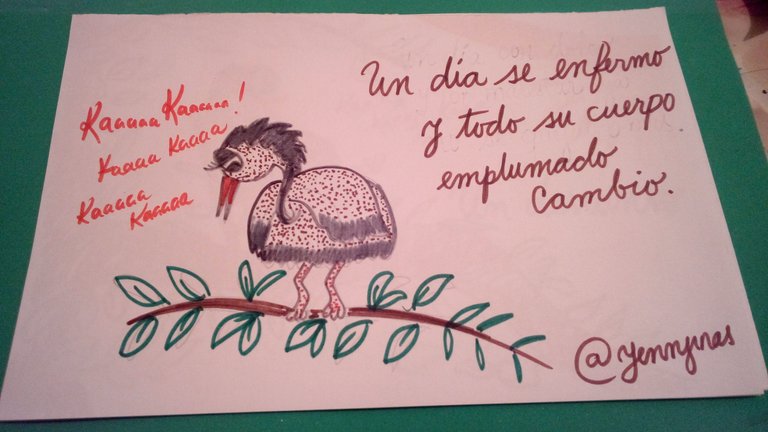 Kaaaaa Kaaaaaa!
Kaaaa Kaaaa
Kaaaaa
Kaaaaa
Un día se enfermo
y todo su cuerpo
emplumado
Cambio.